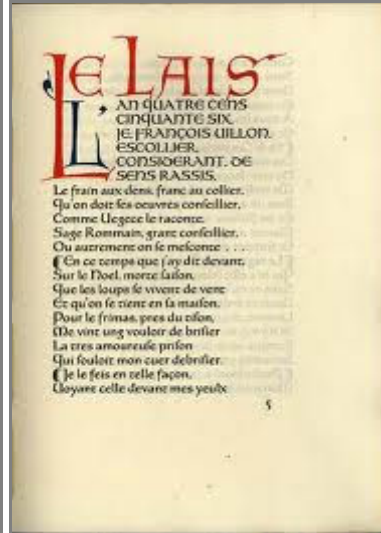 LE LAIS
L'AN QUATRE CENS
CINQUANTE SIX,
JE, FRANÇOIS UILLON,
ESCOLLIER,
CONSIDERANT, DE
SENS RASSIS,
Le frain aux dens, franc au collier,
Qu'on doit ses oeuvres conseillier,
Comme Uegece le raconte,
Sage Rommain, grant conseillier,
Ou autrement on se mesconte . . .
¶ En ce temps que j'ay dit devant,
Sur le Noel, morte saison,
Que les loups se vivent de vent
Et qu'on se tient en sa maison,
Pour le frimas, pres du tison,
Me vint ung vouloir de brisier
La tres amoureuse prison
Qui souloit mon cuer debrisier.
¶ Je le feis en telle façon,
Uoyant celle devant mes yeulx
5